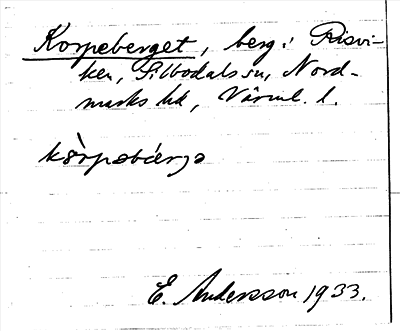 Korpeberget, berg i Risvi-
ken, Sillbodals sn, Nord-
marks hd, Värml. l.
kòrpəbǽrjə
E. Andersson 1933.